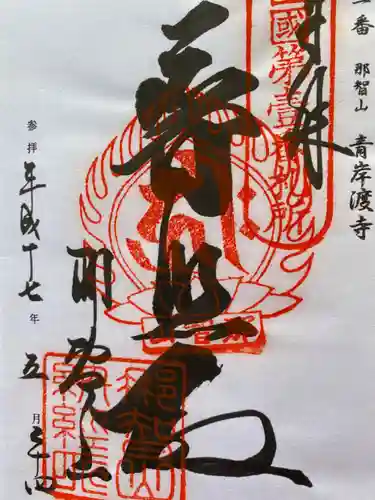 一番 那智山 青岸渡寺
國第壹番札所
普照殿
那智山
参拝 平成十七年 五月二十四